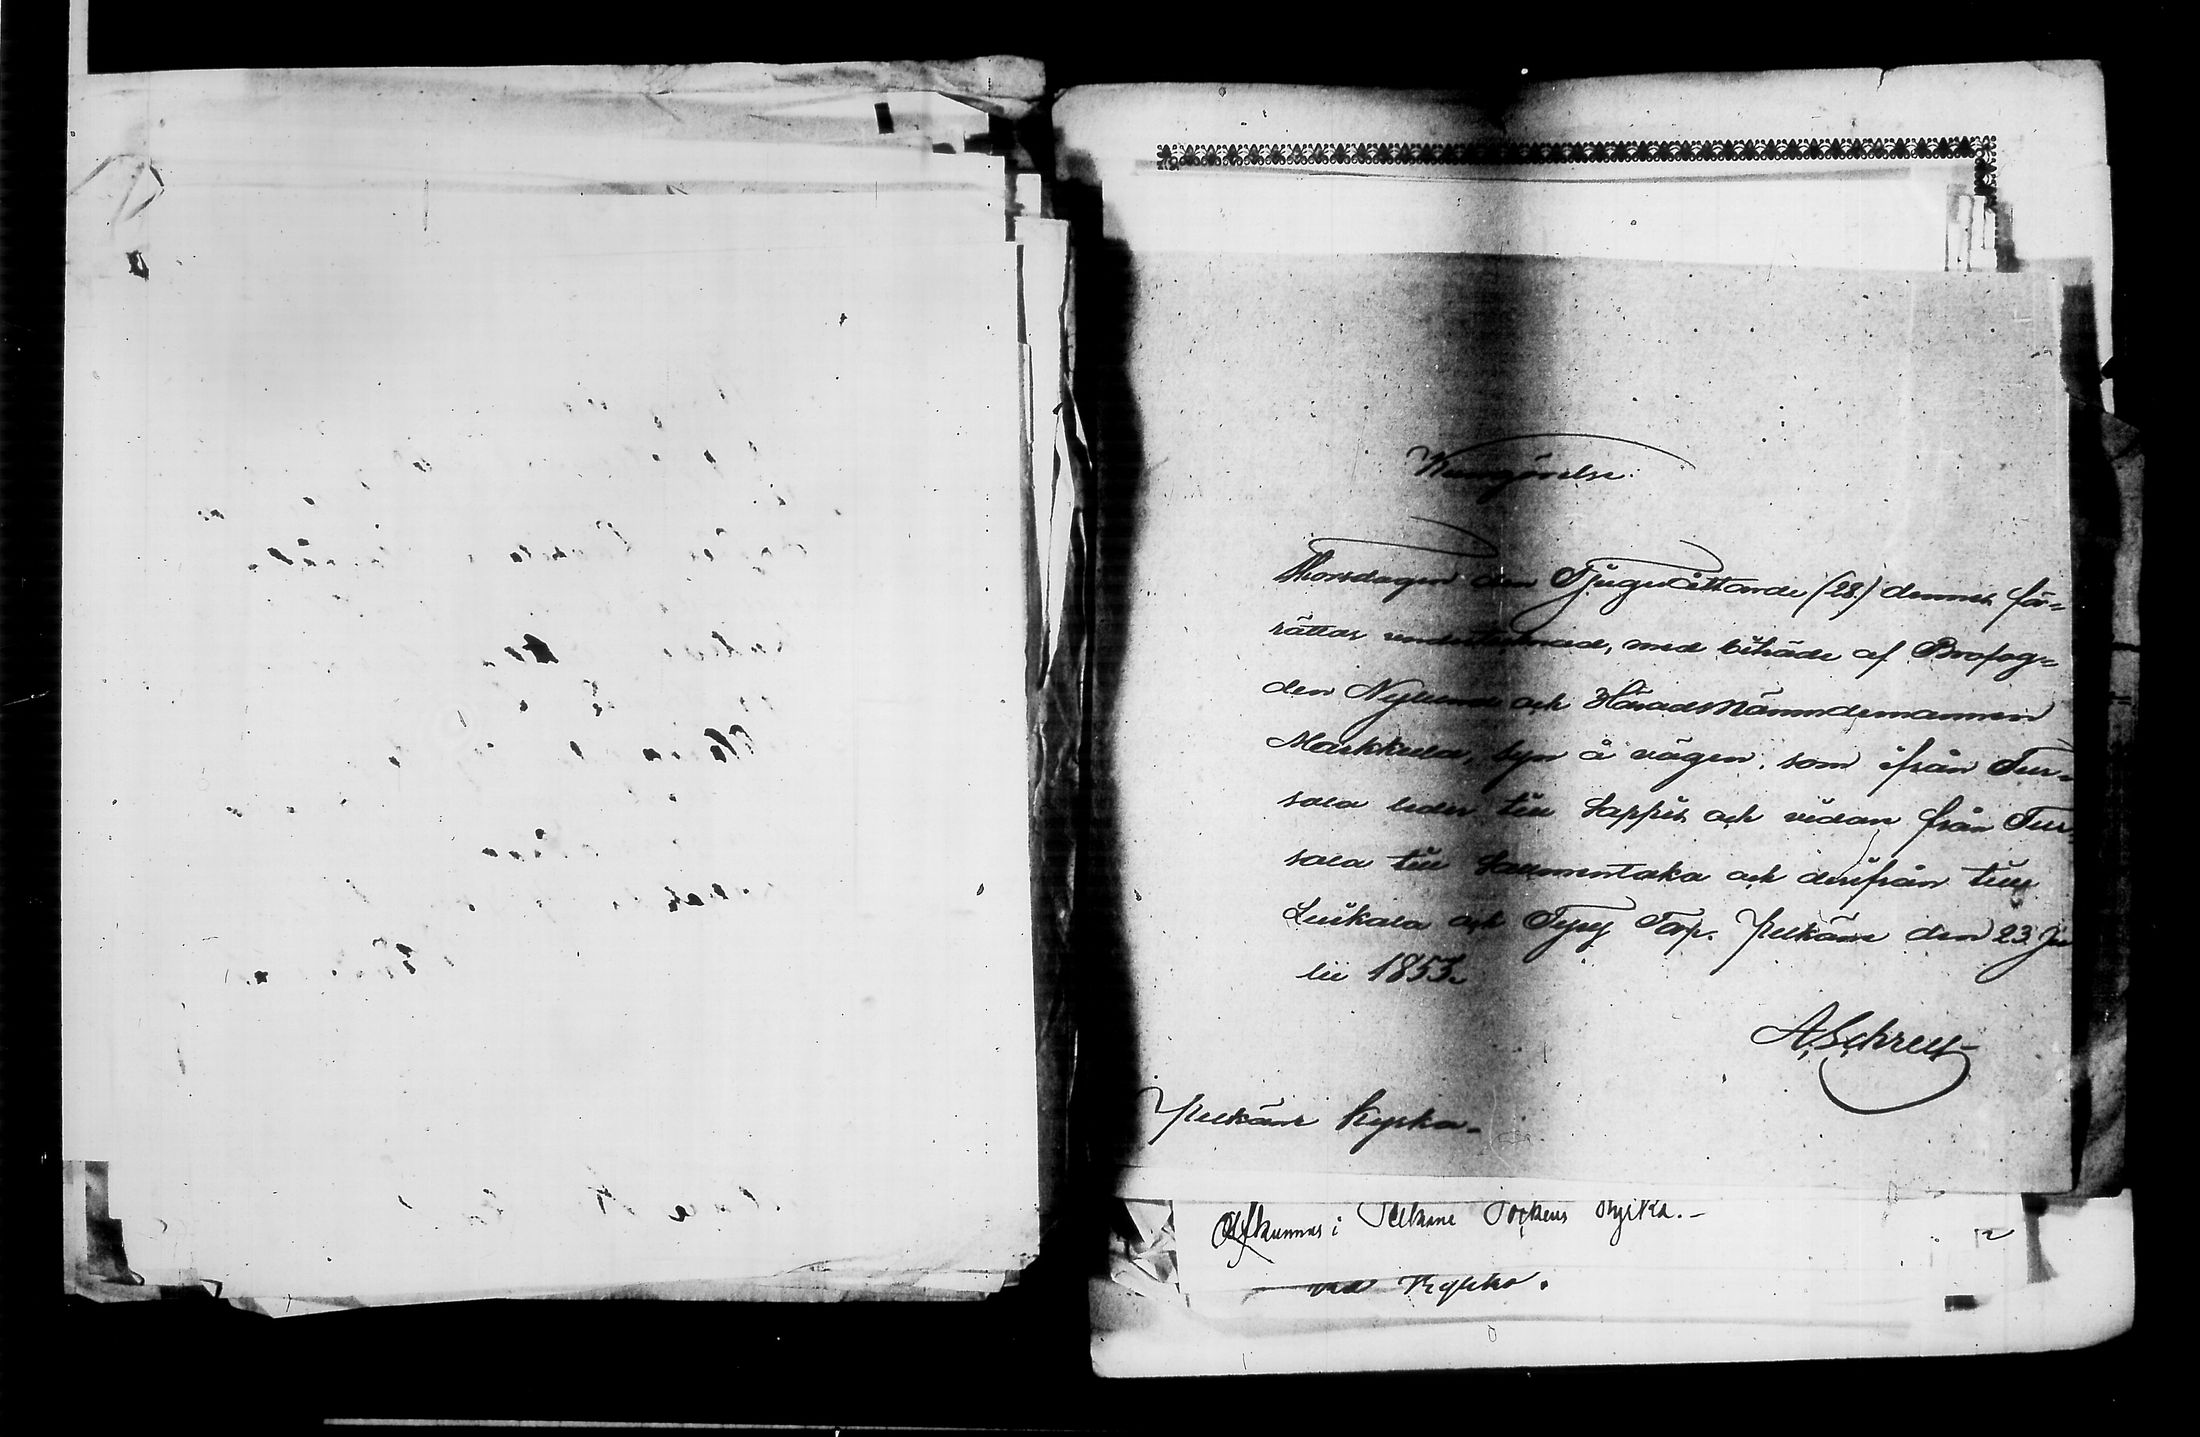 Kungörelse.
Thorsdagen den Tjugeåttonde (28.) dennes för-
rättar undertecknad, med biträde af Brofog-
den Nylund och Häradsnämndemannen
Markkula, syn å vägen, som ifrån Tur-
sala leder till Lappis och vidare från Tur
sala till Salmentaka och derifrån till
Luikala och Torp. Pelkäne den 23 Ju
lii 1853.
A. Schreel
Pelkäne Kyrka.
Afkunnas i Pelkäne Sockens Kyrka.-
Kyrka.